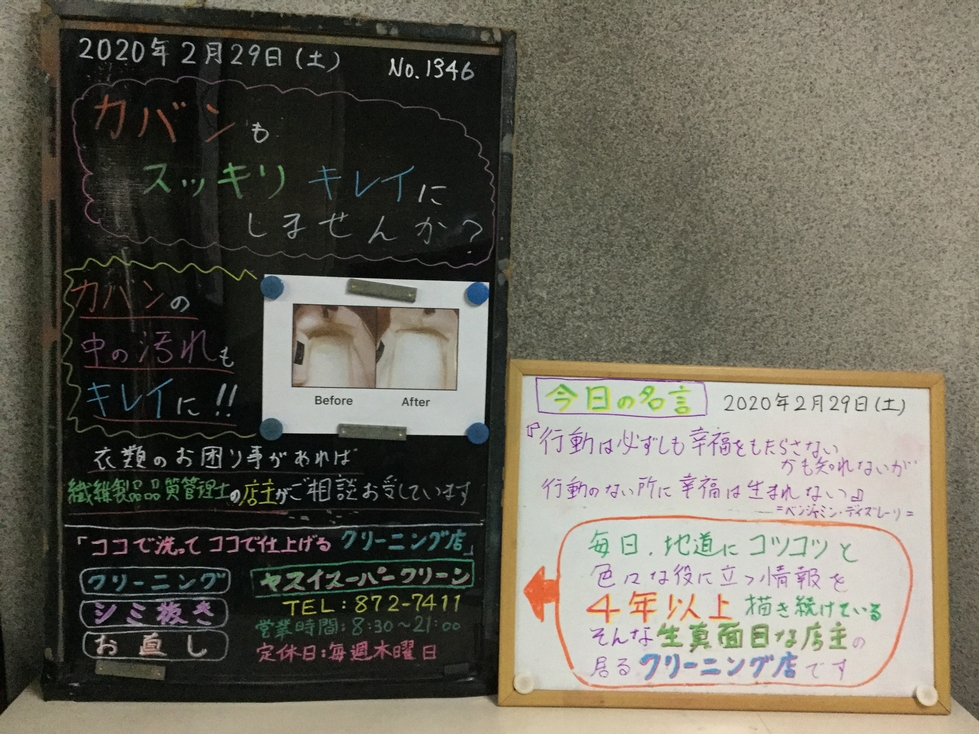 2020年2月29日(土) No.1346
カバンも
スッキリ キレイに
しませんか?
カバンの
中の汚れも
キレイに!!
Before After
衣類のお困り事があれば
繊維製品品質管理士の店主がご相談お受しています
「ココで洗って ココで仕上げる クリーニング店」
クリーニング
シミ抜き
お直し
ヤスイスーパークリーン
TEL:872-7411
営業時間:8:30~21:00
定休日:毎週木曜日
今日の名言 2020年2月29日(土)
『行動は必ずしも幸福をもたらさない
かも知れないが
行動のない所に幸福は生まれない』
=ベンジャミン・ディズレーリ=
毎日、地道にコツコツと
色々な役に立つ情報を
4年以上描き続けている
そんな生真面目な店主の
居るクリーニング店です